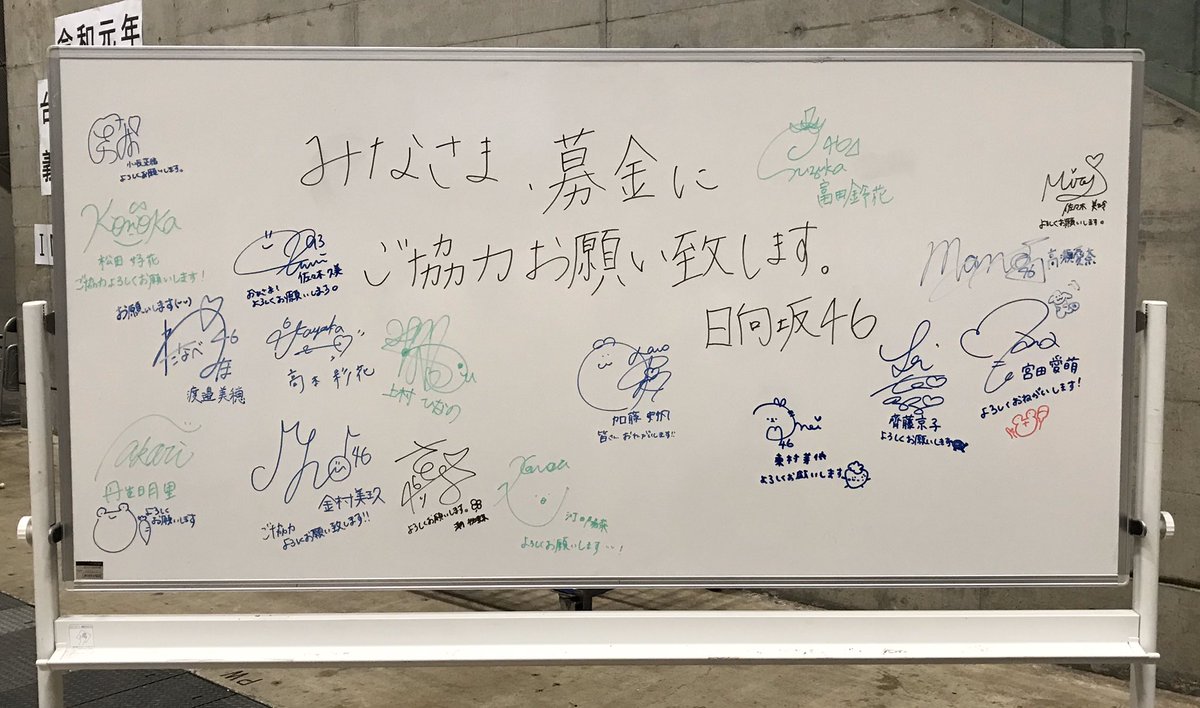 令和元年
台
義
みなさま、募金に
ご協力お願い致します。
日向坂46
小坂菜緒
よろしくお願いします。
Konoka
松田好花
ご協力よろしくお願いします！
佐々木久美
おひさま！
よろしくお願いします。
46
Suzuka
富田鈴花
Mirei
佐々木美玲
よろしくお願いします。
Mana
46
高瀬愛奈
お願いします
わたなべ
46
みほ
渡邉美穂
Ayaka
高本彩花
上村ひなの
Kato
加藤史帆
皆さんおねがいします!!
mei
46
東村芽依
よろしくお願いします
齊藤京子
よろしくお願いします
宮田愛萌
よろしくおねがいします！
akari
丹生明里
よろしく
お願いします
46
金村美玖
ご協力
よろしくお願い致します!!
よろしくお願いします。
河田陽菜
よろしくお願いします…！